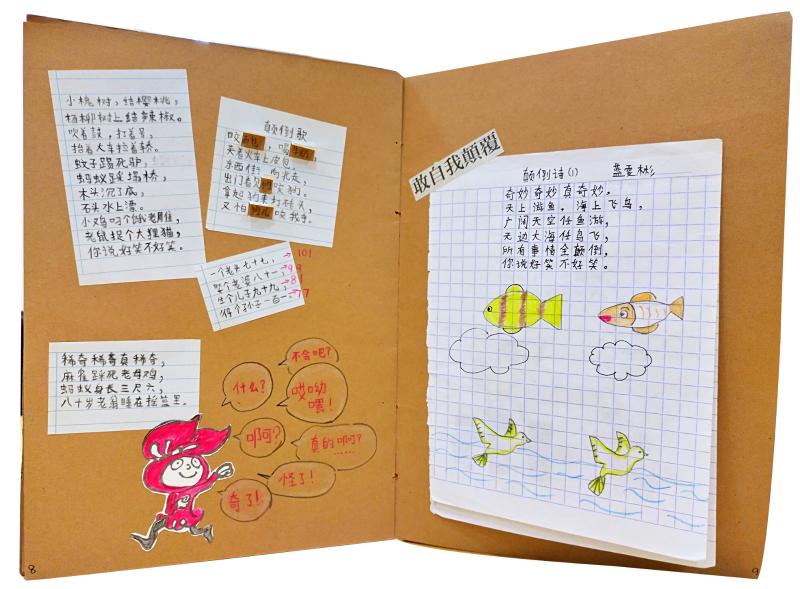 小槐树,结樱桃,
杨柳树上结辣椒。
吹着鼓,打着号,
抬着大车拉着轿。
蚊子踢死驴,
蚂蚁踩塌桥,
木头沉了底,
石头水上漂。
小鸡叼个饿老雕,
老鼠捉个大狸猫,
你说好笑不好笑。
颠倒歌
咬,喝,
夹着火车上皮包。
东西街,向北走,
出门看见咬狗。
拿起狗来打砖头,
又怕咬我手。
一个老头七十七,→101
娶个老婆八十一,→99
生个儿子九十九,→81
得个孙子一百一。→77
稀奇稀奇真稀奇,
麻雀踩死老母鸡,
蚂蚁身长三尺六,
八十岁老翁睡在摇篮里。
不会吧?
什么?
哎呦嘿!
啊?
真的啊?
……
怪了!
奇了!
8
敢自我顛覆
颠倒诗(1)
奇妙奇妙真奇妙,
天上游鱼,海上飞鸟,
广阔天空任鱼游,
无边大海任鸟飞,
所有事情全颠倒,
你说好笑不好笑。
9